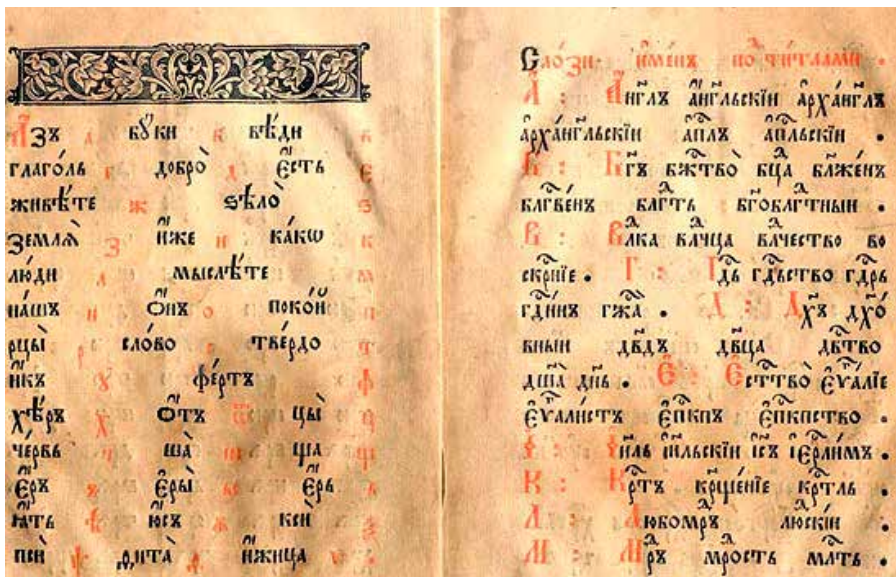 А҆́зъ а бꙋ́ки б вѣ́ди в
глаго́ль г добро̀ д є҆́сть є
живѣ́те ж ѕѣлѡ̀ ѕ
землѧ̀ з и҆́же и ка́кѡ к
лю́ди л мыслѣ́те м
на́шъ н ѻ҆́нъ о поко́й п
рцы̀ р сло́во с тве́рдо т
и҆́къ ꙋ фе́ртъ ф
хѣ́ръ х ѿ цы̀ ц
че́рвь ч ша̀ ш ща щ
є҆́ръ ъ є҆ры̀ ы є҆́рь ь
ꙗ҆́ть ѣ ю҆́съ ѫ ксѝ ѯ
псѝ ѱ ѳита̀ ѳ и҆́жица ѵ
Сло́зи и҆ме́нъ по ти́тлами .
А҆ : А҆́нг҃лъ а҆́нг҃льскїи а҆рха́нг҃лъ
а҆рха́нг҃льскїи а҆пⷭ҇лъ а҆пⷭ҇льскїи .
Б : Бг҃ъ бж҃тво̀ бцⷣа бл҃же́нъ
блг҃ве́нъ блгⷣть бг҃облгⷣтныи .
В : Влⷣка влⷣчца влⷣчество во
скрⷭ҇нїе . Г : Гдⷭ҇ь гдⷭ҇ьство гдⷭ҇рь
гдⷭ҇и́нъ гжⷭ҇а̀ . Д : Дх҃ъ дх҃о́
вныи дв҃дъ дв҃ца дв҃тво
дш҃а̀ дн҃ь . Є҆ : Є҆сттво̀ є҆ѵⷢ҇а́лїе
є҆ѵⷢ҇али́стъ є҆пⷭ҇кпъ є҆пⷭ҇кпство .
І҆ : І҆и҃ль і҆и҃льскїи і҆с҃ъ і҆єрⷭ҇ли́мъ .
К : Крⷭ҇тъ крⷭ҇ще́нїе крⷭ҇тль
Л : Любомрⷣъ люⷣскїи .
М : Мрⷣъ мрⷣость млⷭ҇ть .